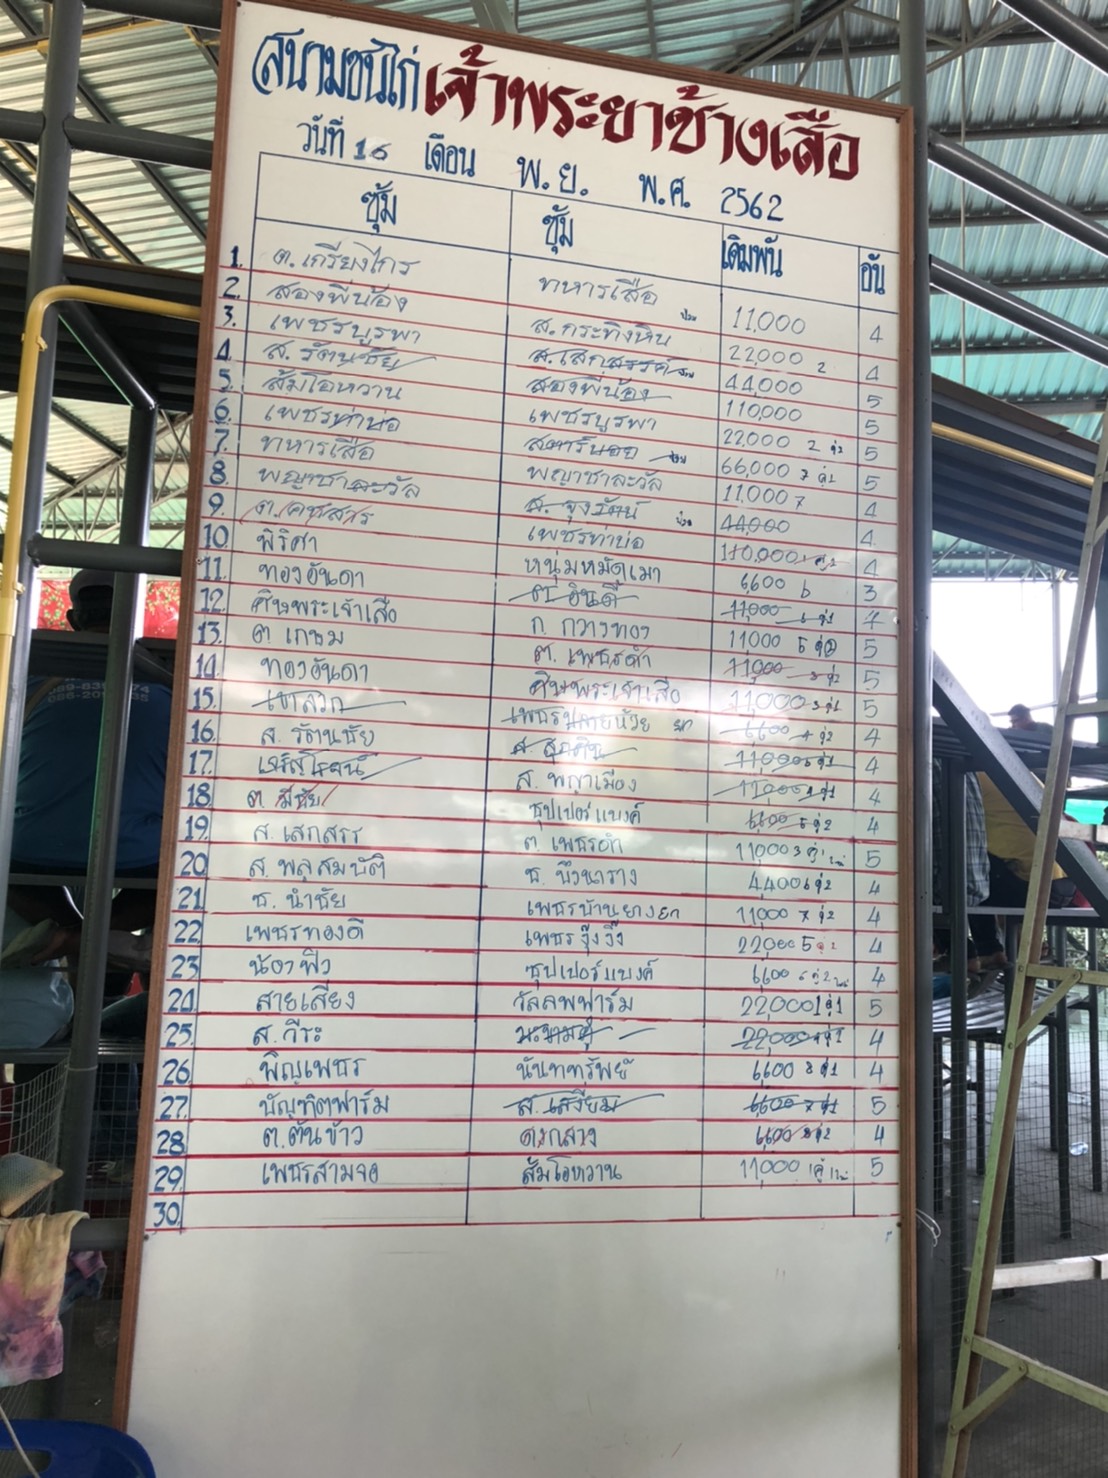 สนามชนไก่เจ้าพระยาช้างเสือ
วันที่ 16 เดือน พ.ย. พ.ศ. 2562
ซุ้ม ซุ้ม เดิมพัน อัน
1. ต.เกรียงไกร ทหารเสือ 11,000 4
2. สองพี่น้อง ส.กระทิงหิน ป่วย 22,000 2 4
3. เพชรบูรพา ส.เสกสรรค์ 44,000 5
4. ส.รัตนชัย สองพี่น้อง 110,000 5
5. ส้มโอหวาน เพชรบูรพา 22,000 2 คู่2 5
6. เพชรท่าบ่อ 66,000 7 คู่1 5
7. ทหารเสือ พญาชาละวัล 11,000 7 4
8. พญาชาละวัล ส.รุ่งรัตน์ ป่วย 44,000 4
9. ต.คชสาร เพชรท่าบ่อ 110,000 4
10. พิริศา หนุ่มหมัดเมา 6600 6 3
11. ทองอันดา ต.อินดี 11,000 4
12. ศิษพระเจ้าเสือ ก.กวางทอง 11000 5 คู่2 5
13. ต.เกษม ต.เพชรดำ 11,000 5
14. ทองอันดา ศิษพระเจ้าเสือ 11,000 3 คู่1 5
15. 6600 4 คู่2 4
16. ส.รัตนชัย 11,000 4
17. ส.พญาเมือง 11,000 4
18. ต.มีชัย ซุปเปอร์แบงค์ 6,600 5 คู่2 4
19. ส.เสกสรร ต.เพชรดำ 11,000 3 5
20. ส.พลสมบัติ ช.บึงนาราง 4400 6 คู่2 4
21. ช.นำชัย เพชรบ้านยางยก 11,000 7 คู่2 4
22. เพชรทองดี เพชรจุ๊งจิ๊ง 22,000 5 คู่2 4
23. น้องฟิว ซุปเปอร์แบงค์ 6,600 6 คู่2 4
24. สายเสี่ยง วัลลพฟาร์ม 22,000 1 คู่1 5
25. ส.วีระ 22,000 4
26. พิญเพชร นันททรัพย์ 6,600 8 คู่1 4
27. บัณฑิตฟาร์ม ส.เสงี่ยม 6,600 7 คู่1 5
28. ต.ต้นข้าว ดงกลาง 6,600 8 คู่2 4
29. เพชรสามจอ ส้มโอหวาน 11,000 1 คู่1 5
30.